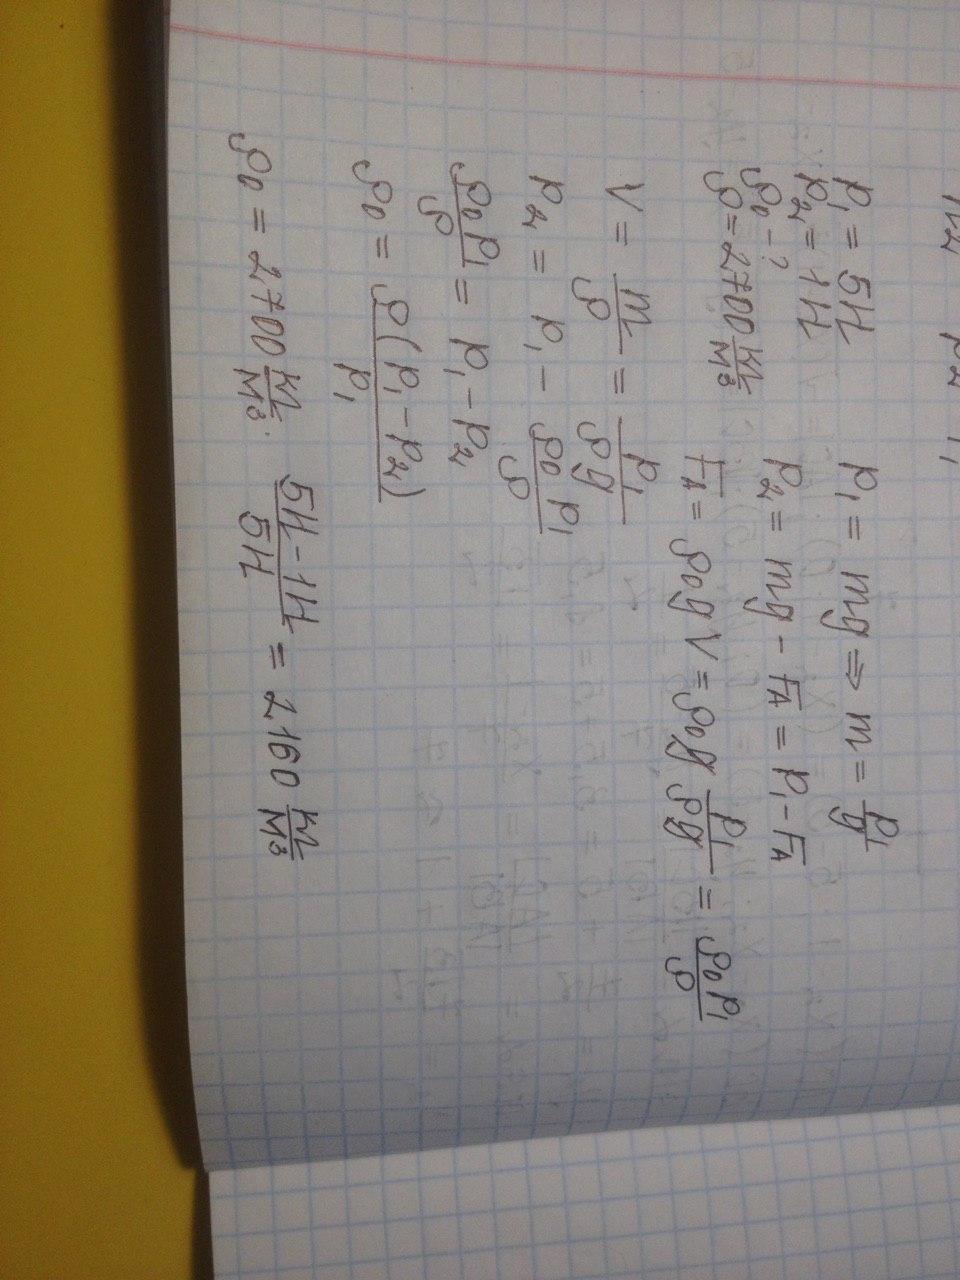 p₁ = 5Н
p₂ = 1Н
ρ₀ - ?
ρ = 2700 кг/м³
p₁ = mg ⇒ m = p₁/g
p₂ = mg - F_A = p₁ - F_A
F_A = ρ₀gV = ρ₀g p₁/ρg = ρ₀p₁/ρ
V = m/ρ = p₁/ρg
p₂ = p₁ - ρ₀p₁/ρ
ρ₀p₁/ρ = p₁ - p₂
ρ₀ = ρ(p₁ - p₂)/p₁
ρ₀ = 2700 кг/м³ · (5Н - 1Н)/5Н = 2160 кг/м³